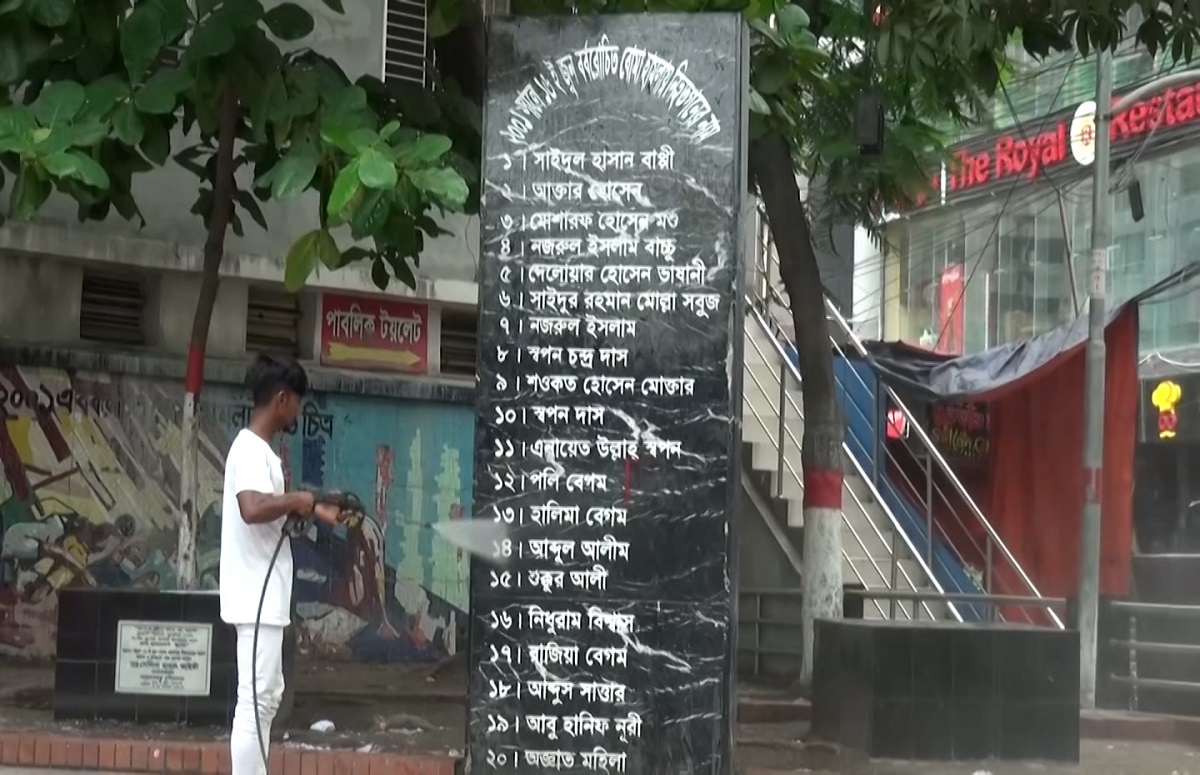 ২০০১ সালে ১৬ ই জুন বর্বরোচিত বোমা হামলায় নিহতদের নাম
১। সাইদুল হাসান বাপ্পী
২। আক্তার হোসেন
৩। মোশারফ হোসেন মশু
৪। নজরুল ইসলাম বাচ্চু
৫। দেলোয়ার হোসেন ভাষানী
৬। সাইদুর রহমান মোল্লা সবুজ
৭। নজরুল ইসলাম
৮। স্বপন চন্দ্র দাস
৯। শওকত হোসেন মোক্তার
১০। স্বপন দাস
১১। এনায়েত উল্লাহ স্বপন
১২। পলি বেগম
১৩। হালিমা বেগম
১৪। আব্দুল আলীম
১৫। শুক্কুর আলী
১৬। নিধুরাম বিশ্বাস
১৭। রাজিয়া বেগম
১৮। আব্দুস সাত্তার
১৯। আবু হানিফ নূরী
২০। অজ্ঞাত মহিলা
পাবলিক টয়লেট
The Royal Resta
২০০১এর
চিত্র